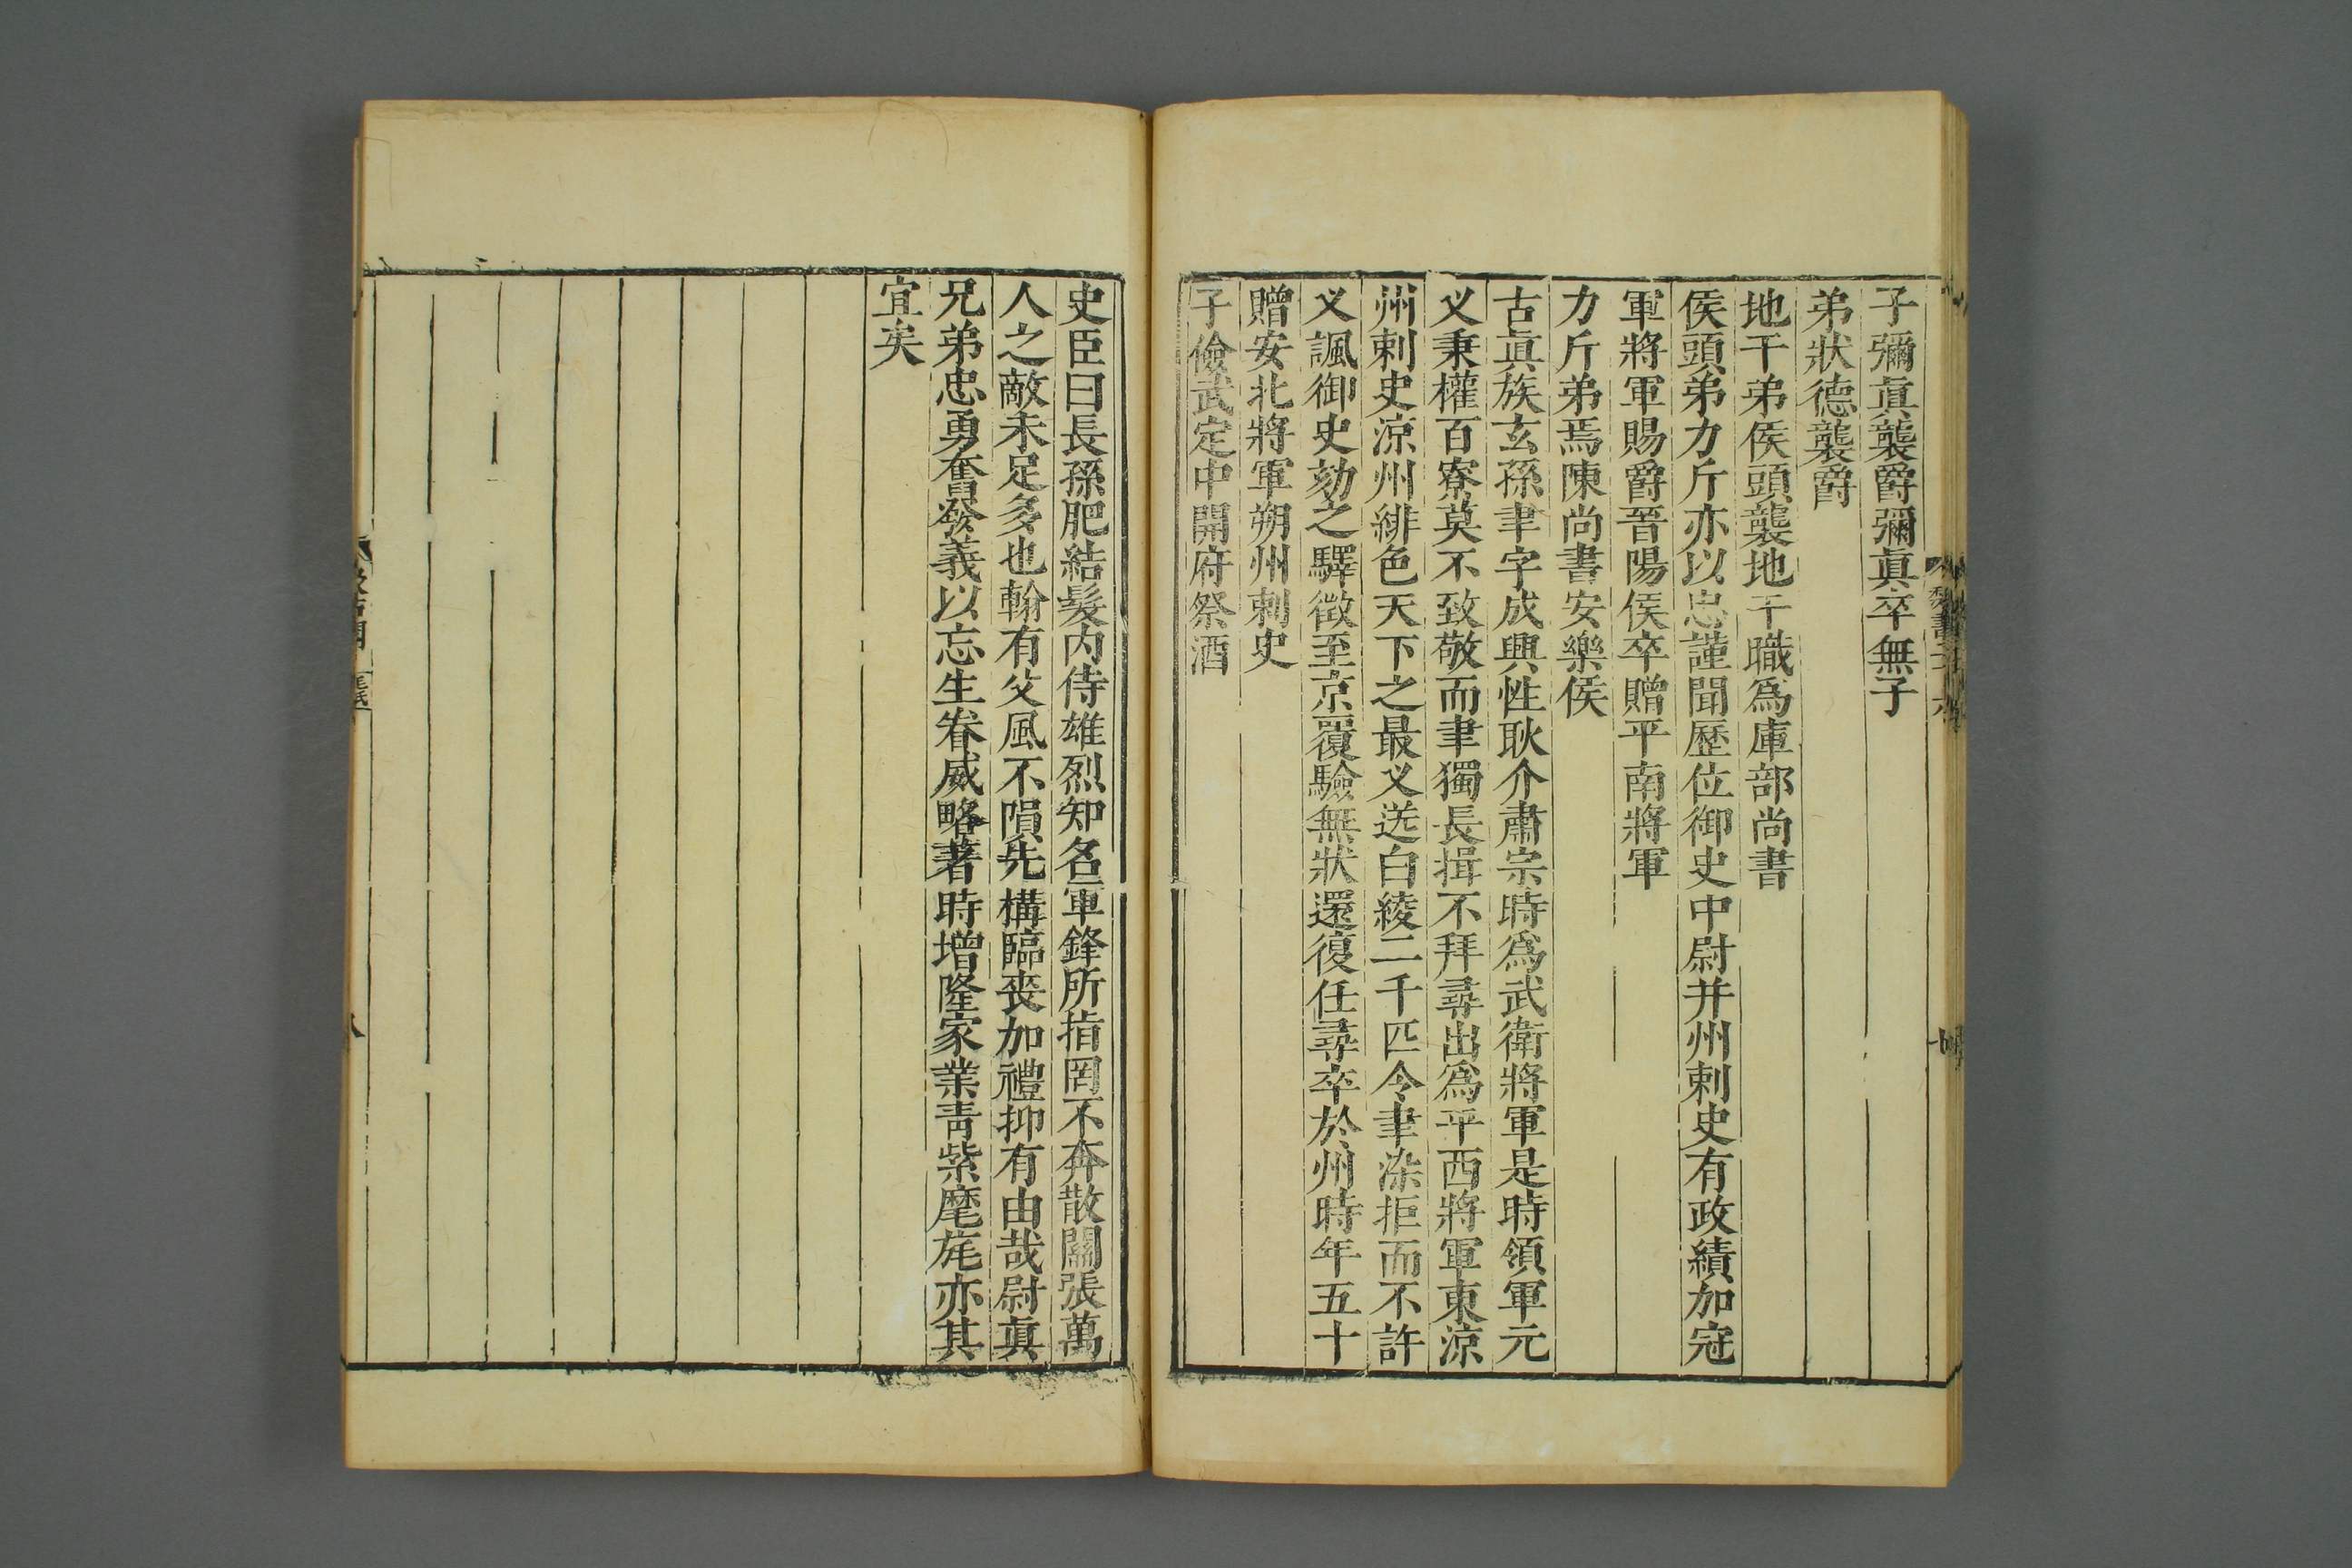 子彌眞襲爵彌眞卒無子
弟狀德襲爵
地干弟侯頭襲地干職爲庫部尚書
侯頭弟力斤亦以忠謹聞歷位御史中尉并州刺史有政績加冠
軍將軍賜爵晉陽侯卒贈平南將軍
力斤弟焉陳尚書安樂侯
古眞族玄孫聿字成興性耿介肅宗時爲武衛將軍是時領軍元
义秉權百寮莫不致敬而聿獨長揖不拜尋出爲平西將軍東涼
州刺史涼州緋色天下之最义送白綾二千匹令聿染拒而不許
义諷御史劾之驛徵至京覆驗無狀還復任尋卒於州時年五十
贈安北將軍朔州刺史
子儉武定中開府祭酒
史臣曰長孫肥結髮内侍雄烈知名軍鋒所指罔不奔散關張萬
人之敵未足多也翰有父風不隕先構臨喪加禮抑有由哉尉眞
兄弟忠勇奮發義以忘生眷威略著時增隆家業靑紫麾旄亦其
宜矣